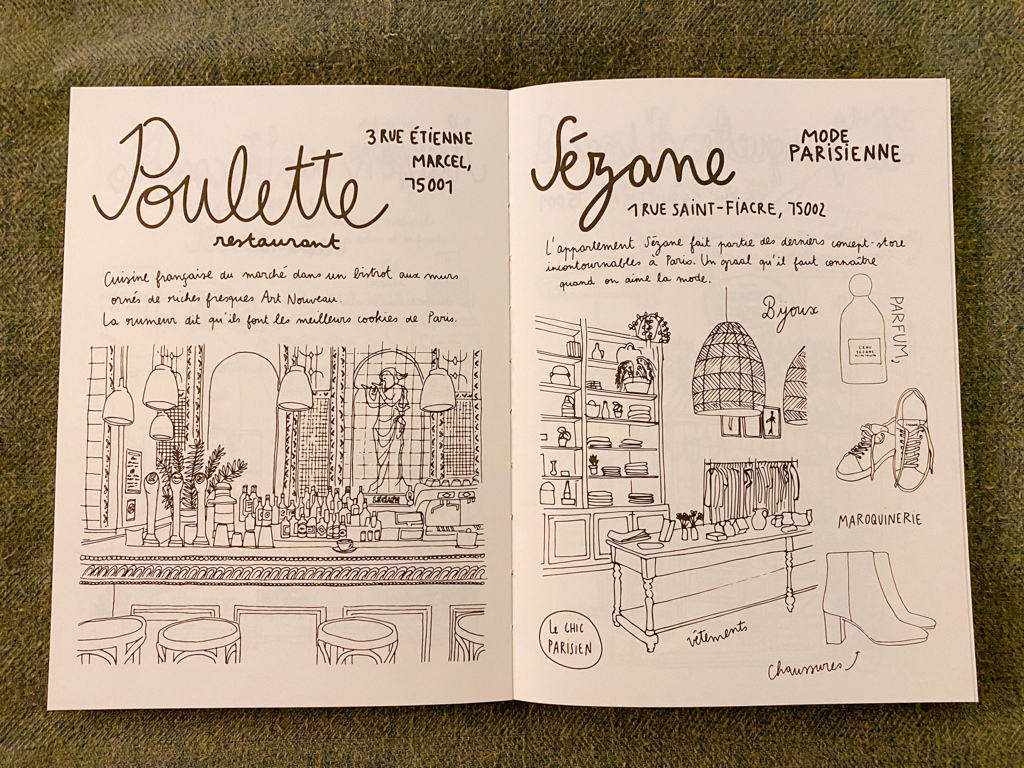 Poulette
restaurant
3 RUE ÉTIENNE
MARCEL,
75001
Cuisine française du marché dans un bistrot aux murs
ornés de riches fresques Art Nouveau.
La rumeur dit qu'ils font les meilleurs cookies de Paris.
Sézane
MODE
PARISIENNE
1 RUE SAINT-FIACRE, 75002
L'appartement Sézane fait partie des derniers concept-store
incontournables à Paris. Un graal qu'il faut connaître
quand on aime la mode.
Bijoux
PARFUM,
L'EAU
SÉZANE
MAROQUINERIE
LE CHIC
PARISIEN
vêtements
Chaussures